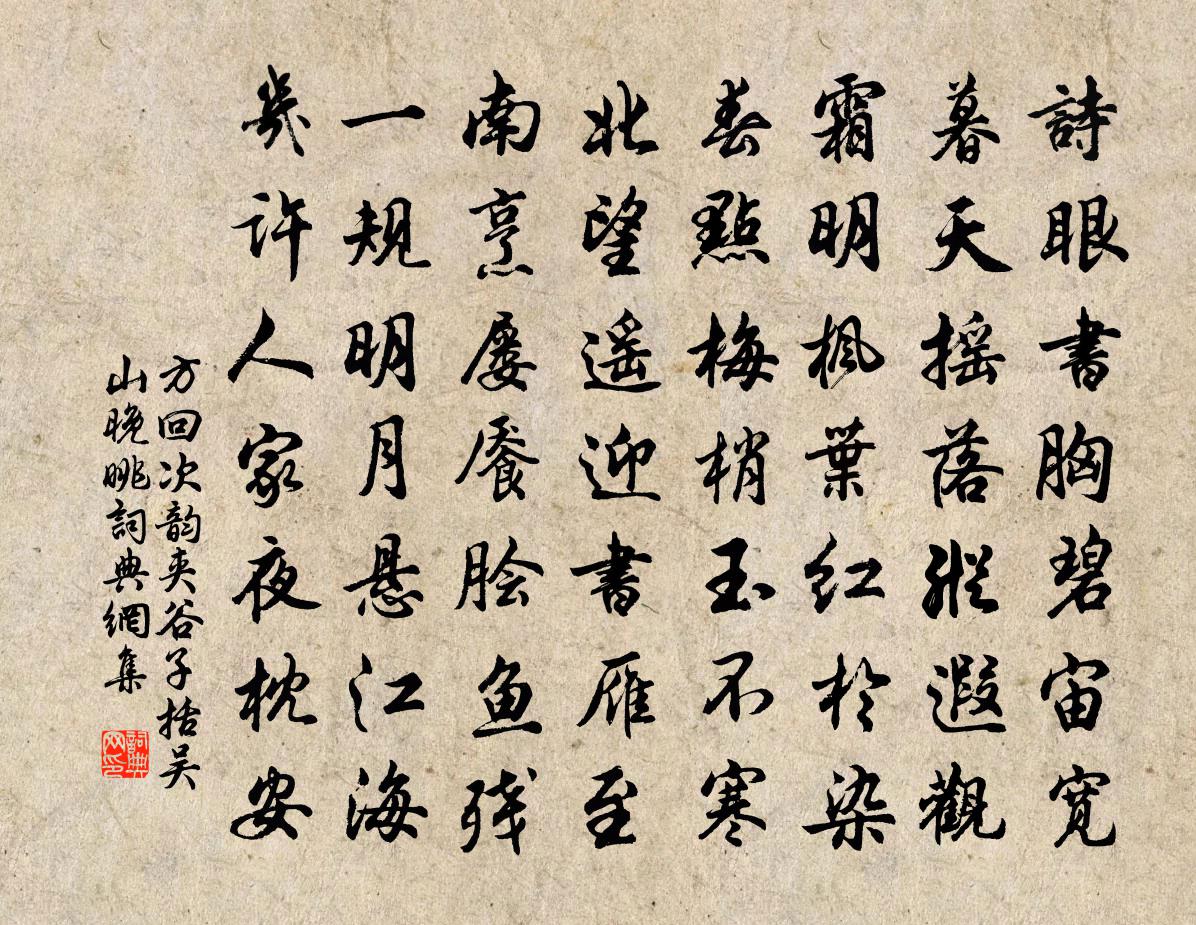 詩眼書胸碧宙寬
暮天摇落縱遐觀
霜明楓葉红於染
春點梅梢玉不寒
北望遥迎書雁至
南烹屡饜脍鱼残
一规明月悬江海
幾许人家夜枕安
方回次韵夹谷子括吴
山晚眺詞典網集
詞典
网印